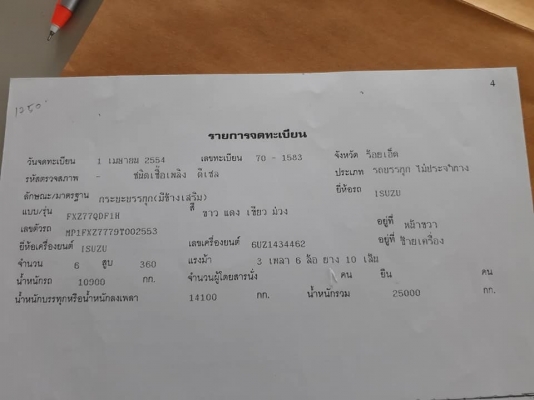 4
1250
รายการจดทะเบียน
วันจดทะเบียน 1 เมษายน 2554 เลขทะเบียน 70 - 1583 จังหวัด ร้อยเอ็ด
รหัสตรวจสภาพ - ชนิดเชื้อเพลิง ดีเซล ประเภท รถบรรทุก ไม่ประจำทาง
ลักษณะ/มาตรฐาน กระบะบรรทุก(มีข้างเสริม) ยี่ห้อรถ ISUZU
แบบ/รุ่น FXZ77QDFiH สี ขาว แดง เขียว ม่วง
เลขตัวรถ MP1FXZ7779T002553 อยู่ที่ หน้าขวา
ยี่ห้อเครื่องยนต์ ISUZU เลขเครื่องยนต์ 6UZ1434462 อยู่ที่ ซ้ายเครื่อง
จำนวน 6 สูบ 360 แรงม้า 3 เพลา 6 ล้อ ยาง 10 เส้น
น้ำหนักรถ 10900 กก. จำนวนผู้โดยสารนั่ง คน ยืน คน
น้ำหนักบรรทุกหรือน้ำหนักลงเพลา 14100 กก. น้ำหนักรวม 25000 กก.